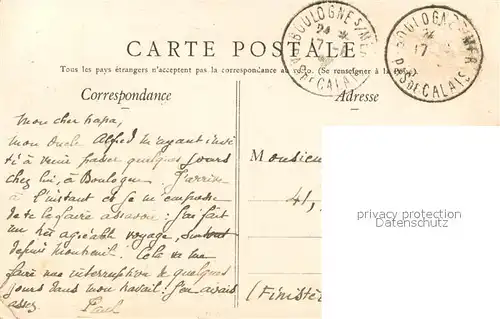 CARTE POSTALE
Tous les pays étrangers n'acceptent pas la correspondance au recto. (Se renseigner à la Poste).
BOULOGNE S/MER
24
17
PAS DE CALAIS
BOULOGNE S/MER
17
PAS DE CALAIS
Correspondance
Adresse
Mon cher papa,
Mon Oncle Alfred m'ayant invi
té à venir passer quelques jours
chez lui, à Boulogne. J'arrive
à l'instant et je m'empresse
de te le faire assavoir; j'ai fait
un très agréable voyage, surtout
depuis Montreuil. Cela va me
faire une interruption de quelques
jours dans mon travail: j'en avais
assez. Paul
Monsieu
41,
(Finistè
privacy protection
Datenschutz